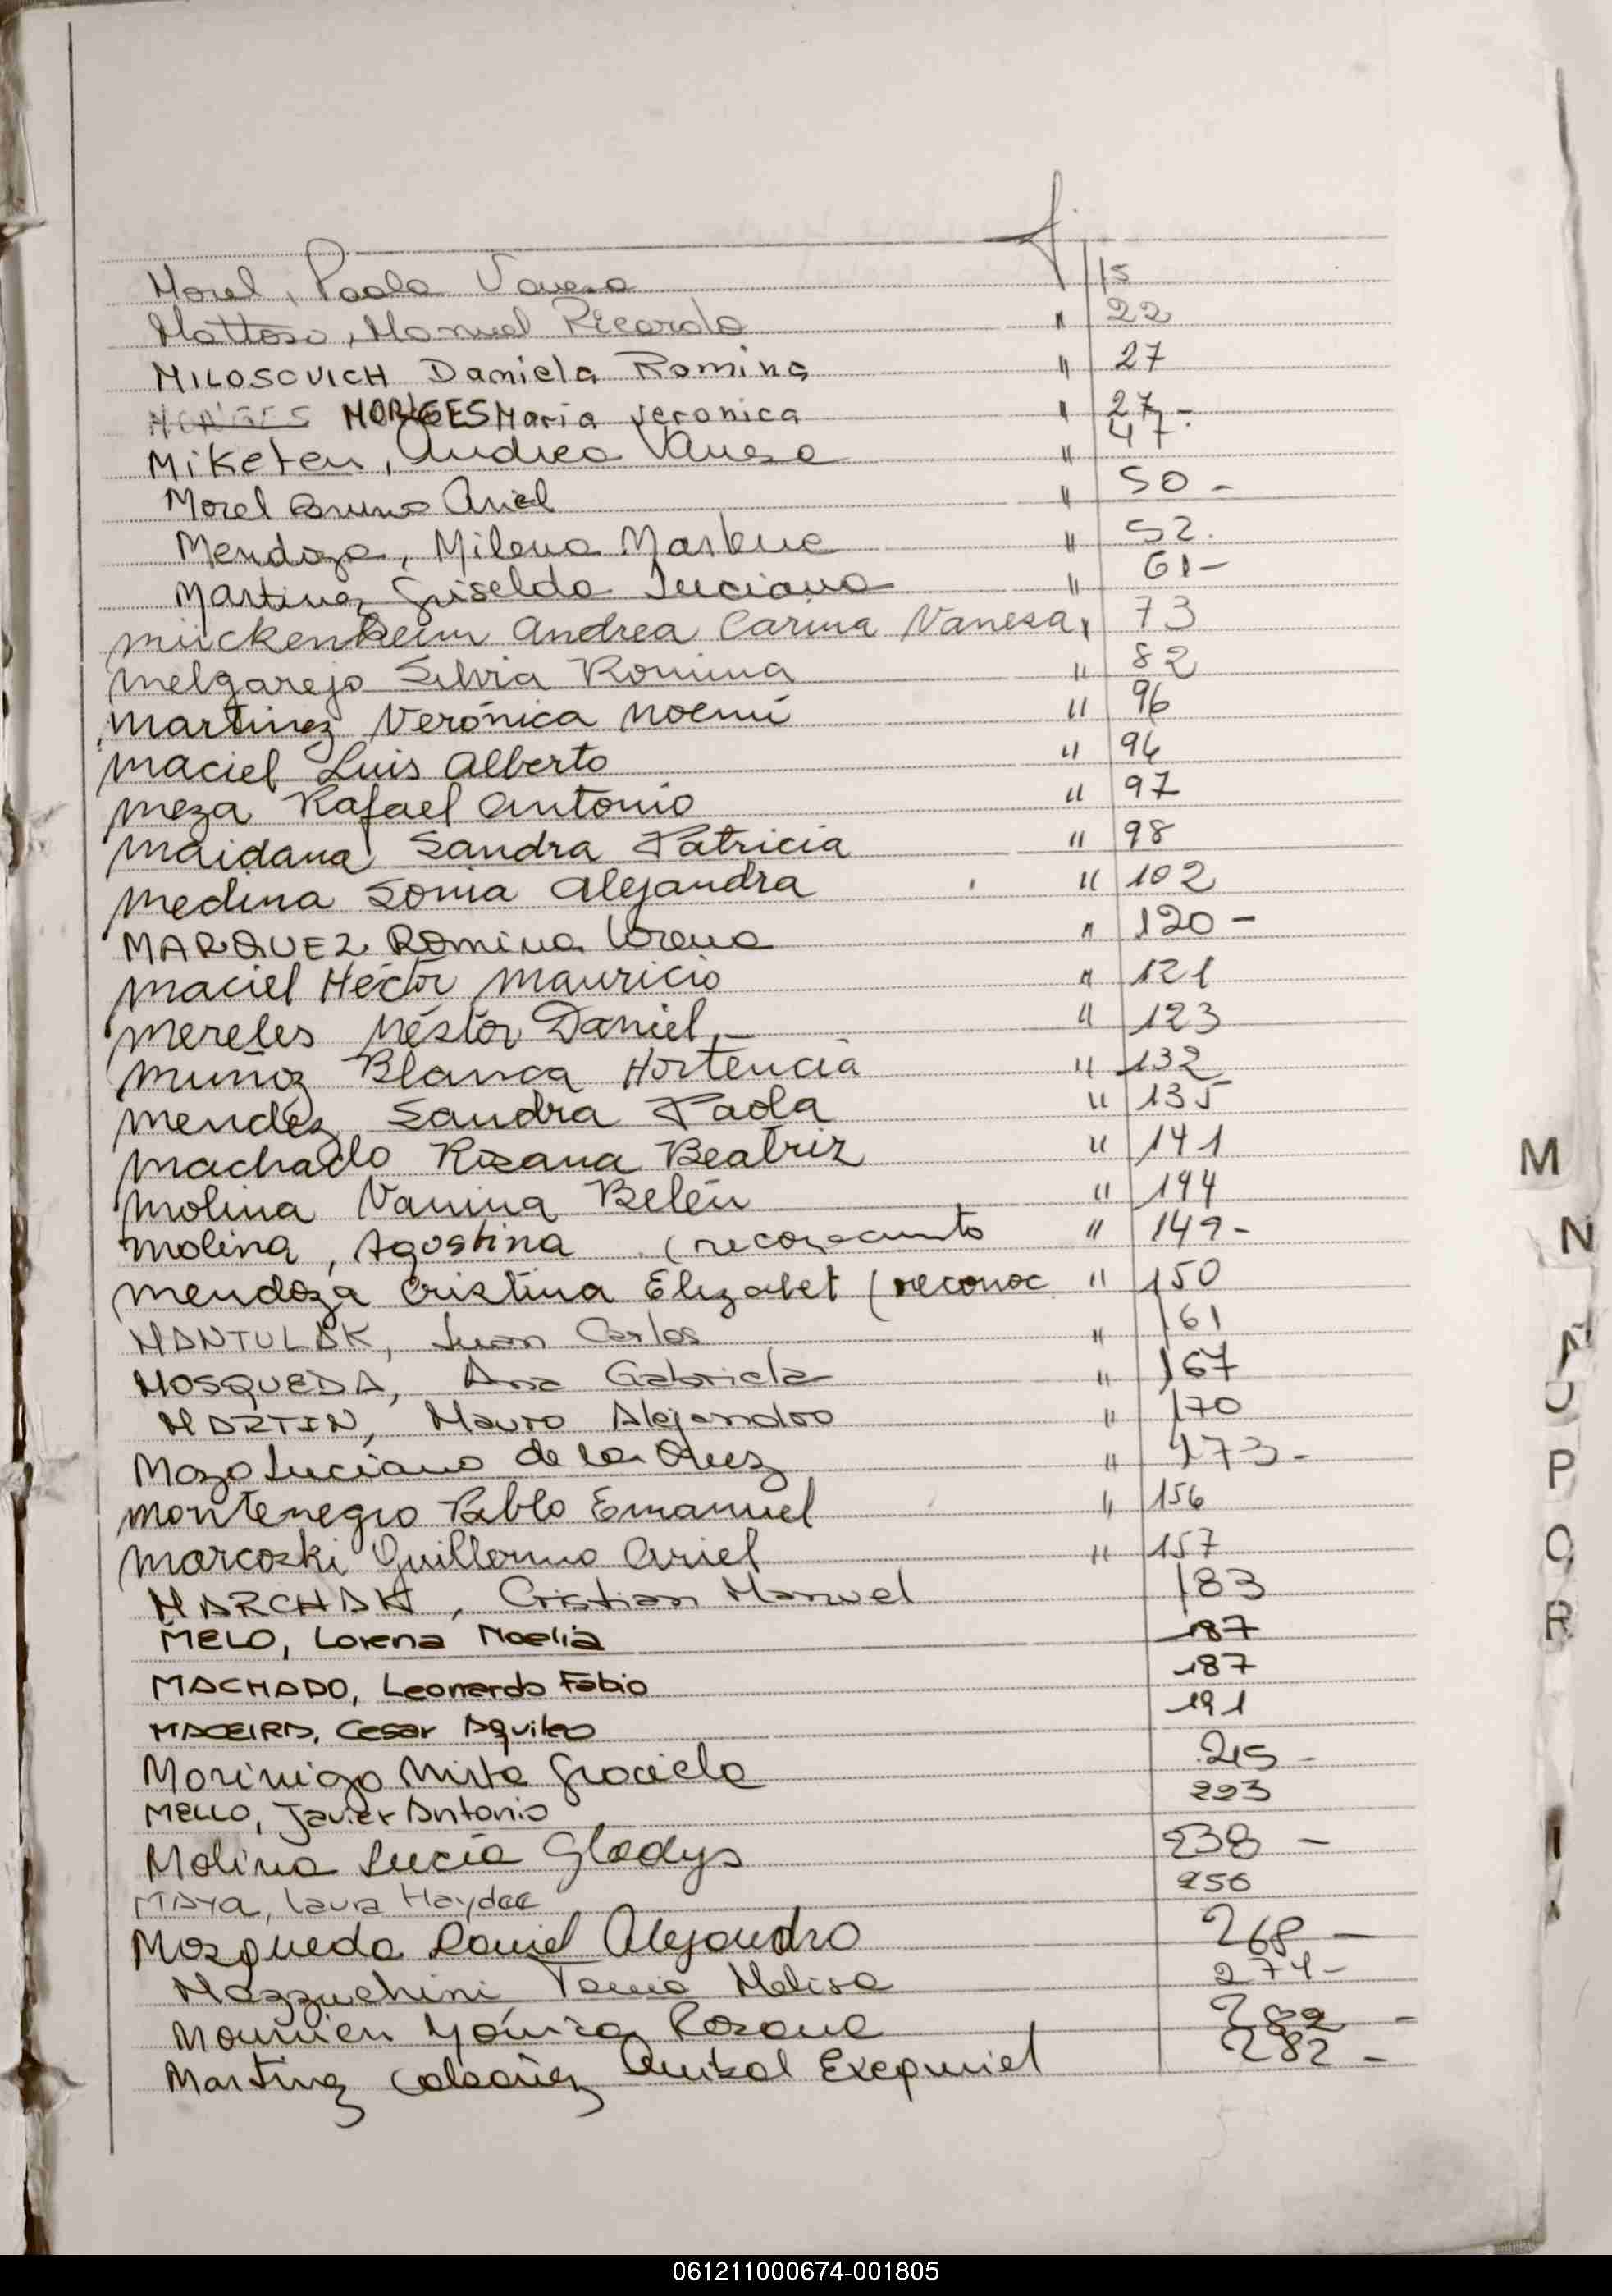 f.
Morel, Paola Vanesa 15
Mattoso, Manuel Ricardo " 22
MILOSOVICH Daniela Romina " 27
MONGES MONGES Maria Veronica " 27-
Miketen, Andrea Vanesa " 47.
Morel Bruno Ariel " 50-
Mendoza, Milena Marlene " 52.
Martinez Griselda Luciana " 61-
Mückenheim Andrea Carina Vanesa " 73
Melgarejo Silvia Romina " 82
Martinez Verónica Noemí " 96
Maciel Luis Alberto " 96
Meza Rafael Antonio " 97
Maidana Sandra Patricia " 98
Medina Sonia Alejandra " 102
MARQUEZ Romina Lorena " 120-
Maciel Héctor Mauricio " 121
Mereles Néstor Daniel " 123
Muñoz Blanca Hortencia " 132
Mendez Sandra Paola " 135
Machado Rosana Beatriz " 141
Molina Vanina Belén " 144
Molina, Agostina (reconocimiento " 149-
Mendoza Cristina Elizabet (reconoc " 150
MANTULAK, Juan Carlos " 161
MOSQUEDA, Ana Gabriela " 167
MARTIN, Mauro Alejandro " 170
Mozo Luciano de la Cruz " 173-
Montenegro Pablo Emanuel " 156
Marcoski Guillermo Ariel " 157
MARCHAK, Cristian Manuel 183
MELO, Lorena Noelia 187
MACHADO, Leonardo Fabio 187
MACEIRA, Cesar Aquileo 191
Morinigo Mirta Graciela 215-
MELLO, Javier Antonio 223
Molina Lucía Gladys 238-
MAYA, Laura Haydee 256
Mosqueda Daniel Alejandro 268-
Mazzuchini, Tania Melisa 274-
Mounien Mónica Rosana 282-
Martinez Anibal Exequiel 282-
M
N
Ñ
U
P
Q
R
061211000674-001805